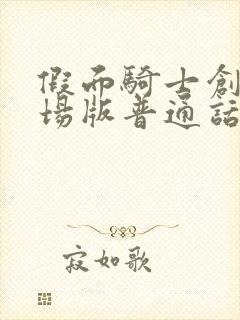 假面騎士創
場版普通話
寂如歌